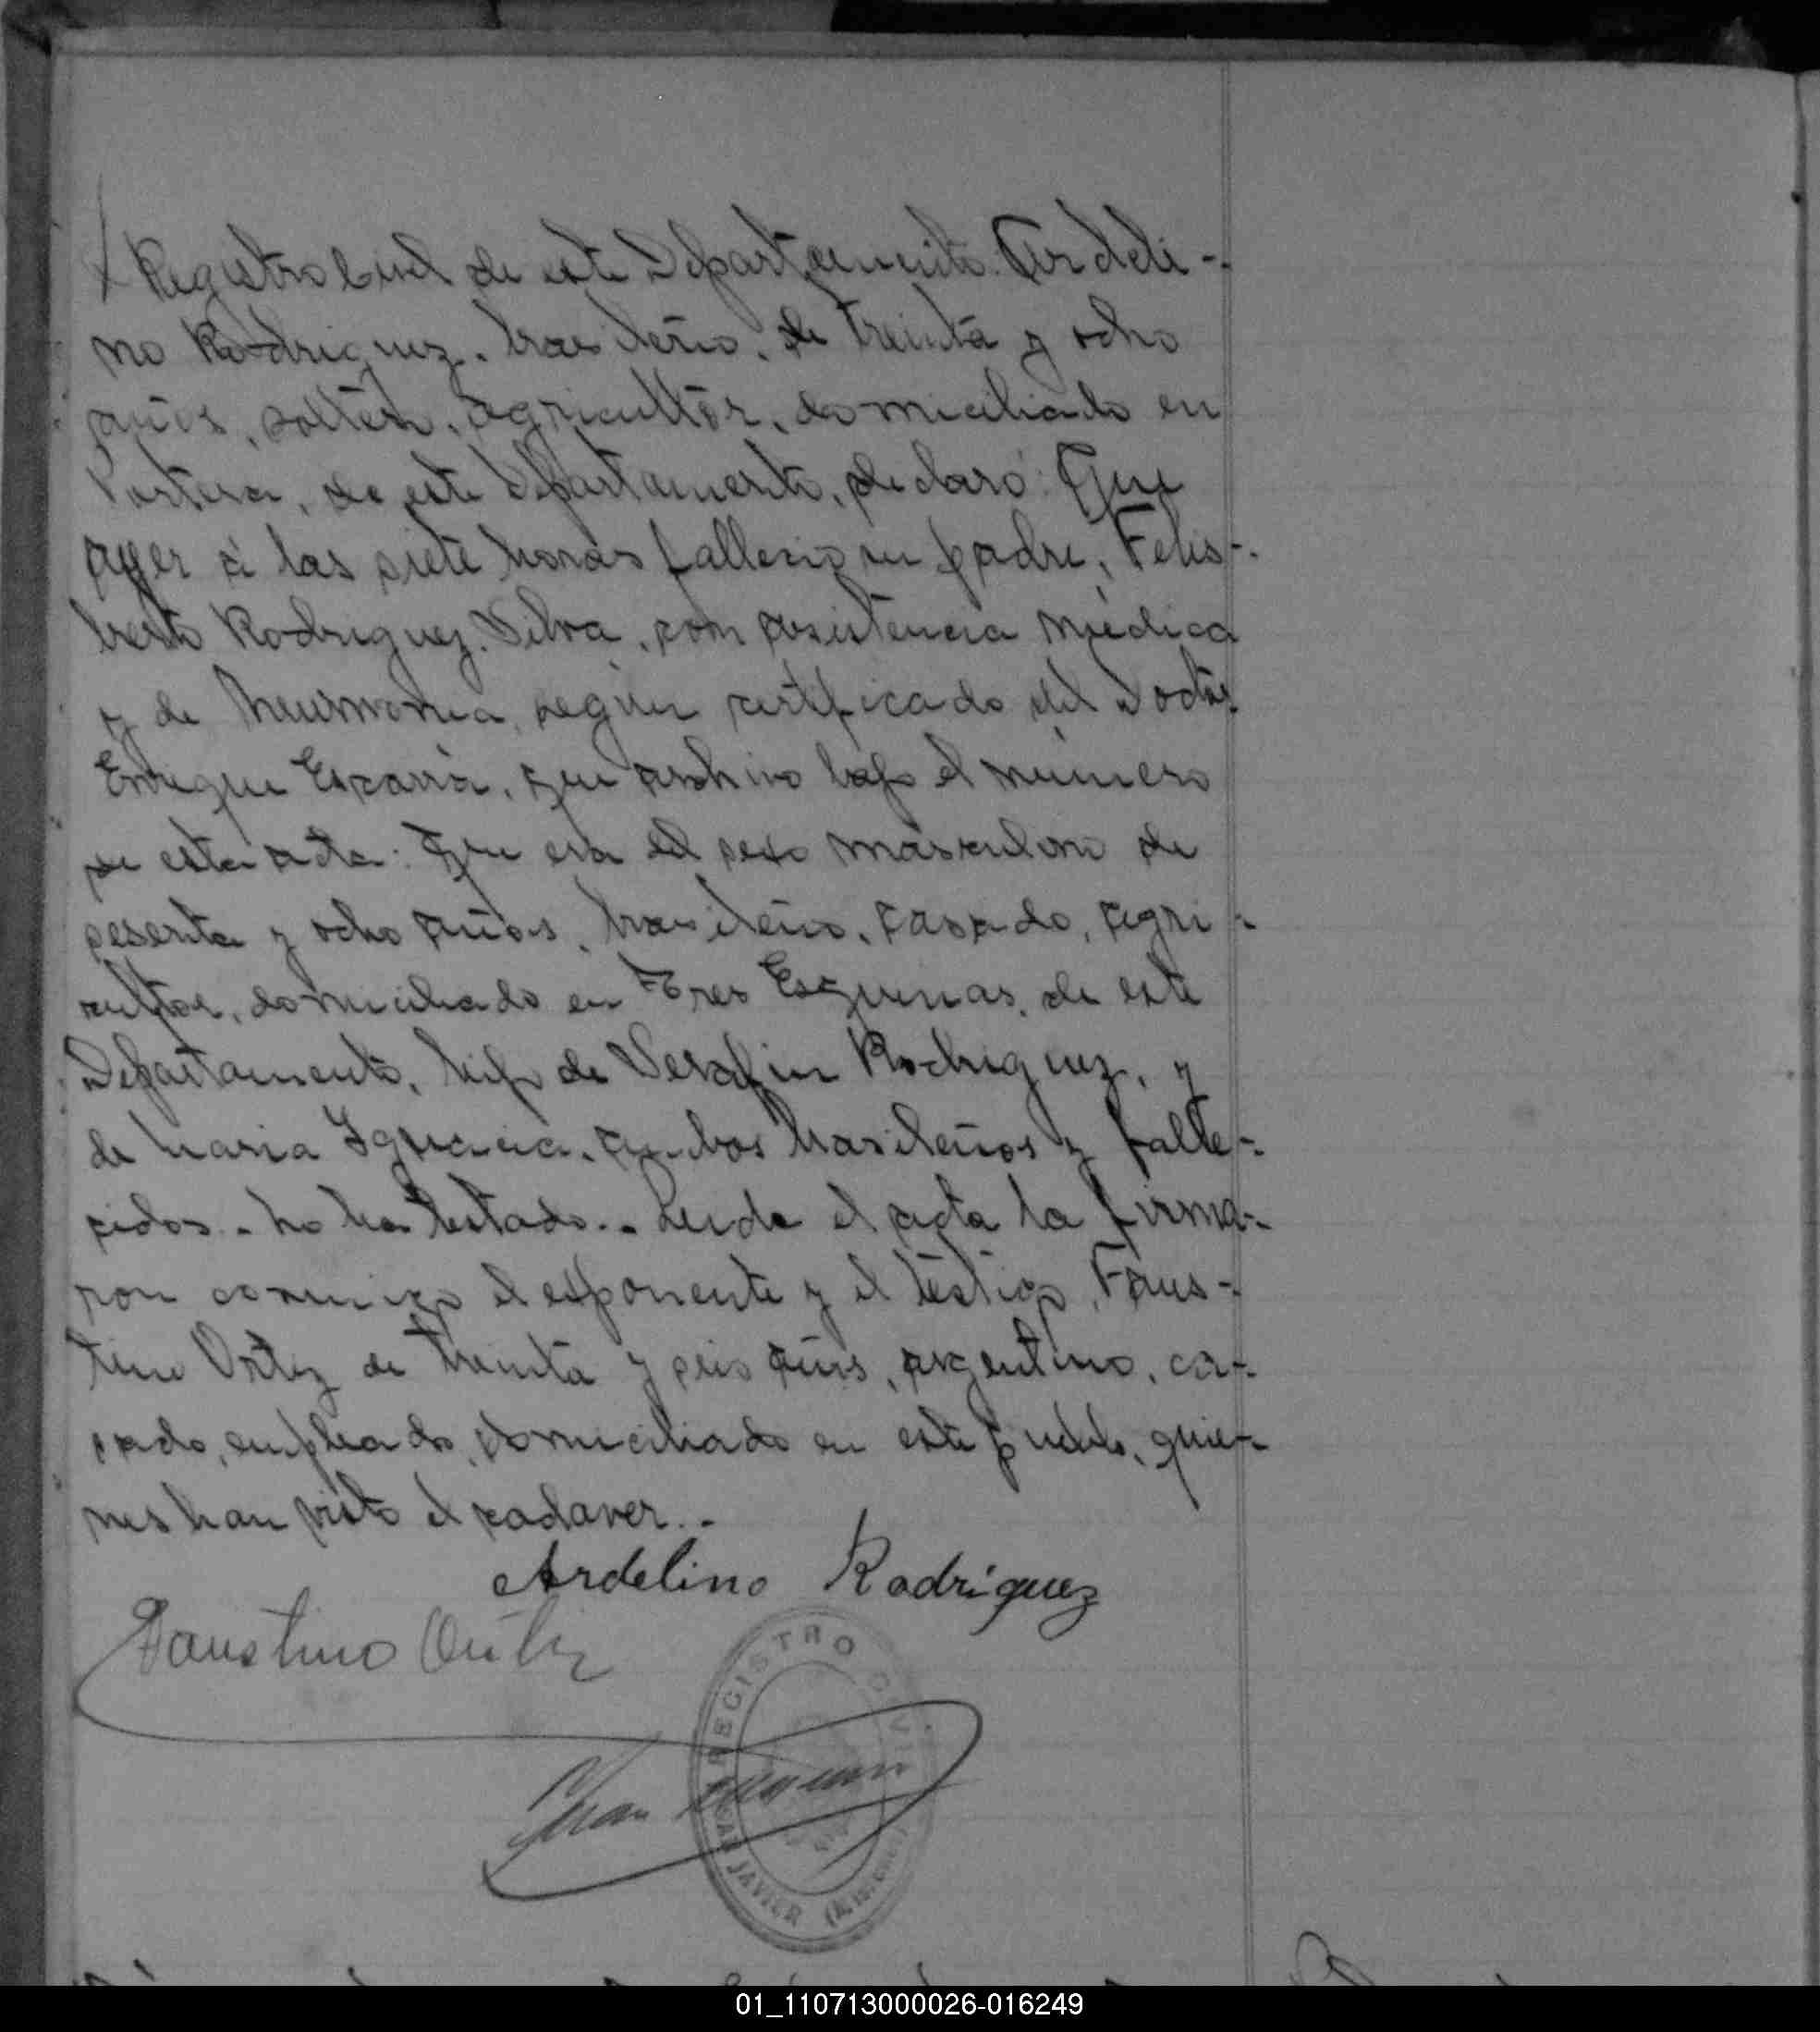 Registro Civil de este Departamento. Ardeli-
no Rodriguez. brasileño. de treinta y ocho
años, soltero, agricultor, domiciliado en
Portera, de este Departamento, declaró: Que
ayer á las siete horas fallecio su padre, Felis-
berto Rodriguez Silva, con asistencia médica
y de Neumonia, según certificado del Doctor
Enrique, que archivo bajo el número
de esta acta: Que era del sexo masculino de
sesenta y ocho años, brasileño, casado, agri-
cultor, domiciliado en Tres Esquinas, de este
Departamento, hijo de Serafin Rodriguez, y
de Maria Ignacia, ambos brasileños y falle-
cidos.- No ha testado.- Leida el acta la firma-
ron conmigo el exponente y el testigo, Faus-
tino Ortiz de treinta y seis años, argentino, ca-
sado, empleado, domiciliado en este pueblo, quie-
nes han visto el cadaver.-
Ardelino Rodriguez
Faustino Ortiz
REGISTRO CIVIL
Juan
SAN JAVIER (Misiones)
01_110713000026-016249